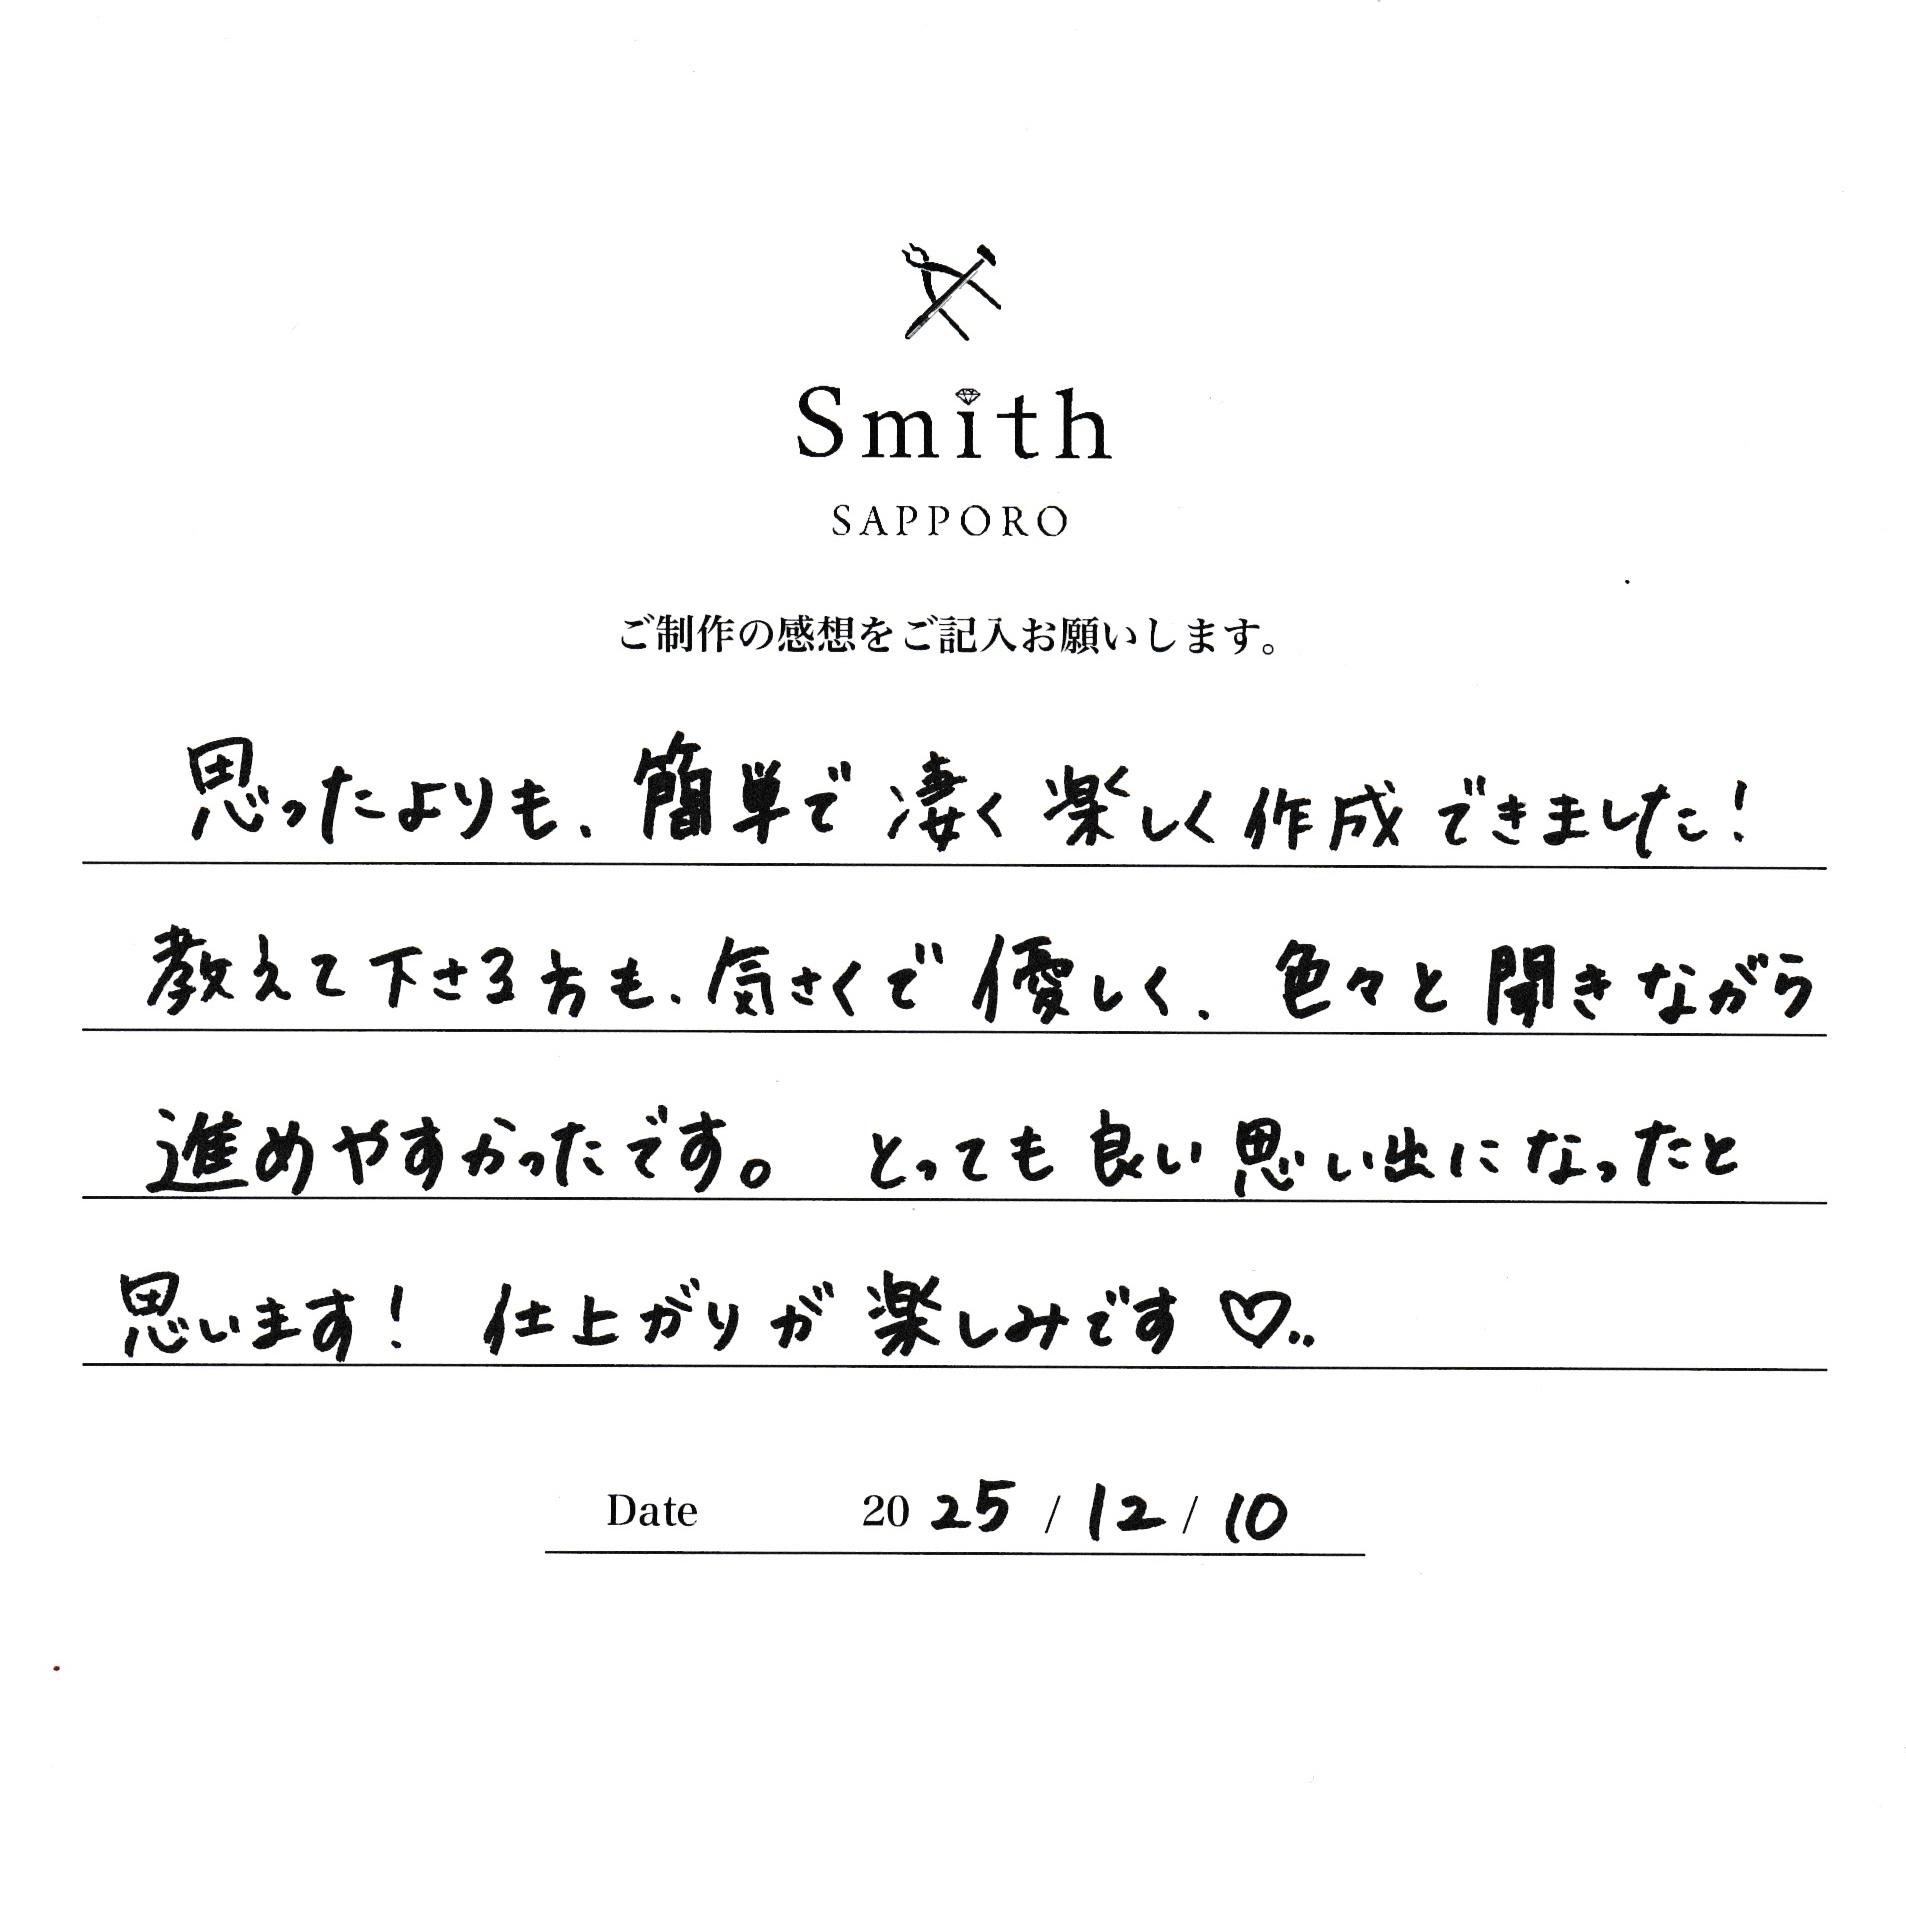 Smith
SAPPORO
ご制作の感想をご記入お願いします。
思ったよりも、簡単で凄く楽しく作成できました！
教えて下さる方も、気さくで優しく、色々と聞きながら
進めやすかったです。とっても良い思い出になったと
思います！仕上がりが楽しみです♡..
Date 2025/12/10